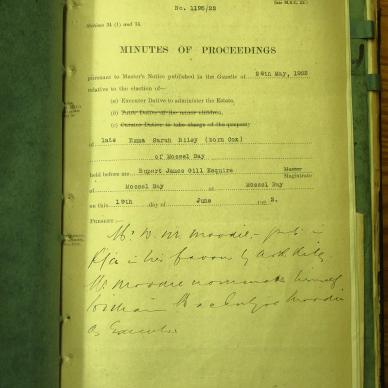 No. 1195/22
Sections 31 (1) and 34.
MINUTES OF PROCEEDINGS
pursuant to Master's Notice published in the Gazette of 26th May, 1922
relative to the election of—
(a) Executor Dative to administer the Estate.
(b) Tutor Dative of the minor children.
(c) Curator Dative to take charge of the property
of late Emma Sarah Riley (born Cox)
of Mossel Bay
held before me Rupert Janes Gill Esquire Master
Magistrate
of Mossel Bay at Mossel Bay
on this 19th day of June 192 2.
PRESENT:—
Mr. W. M. Moodie,
in his favour by
Mr. Moodie nominates himself
William Moodie
as Executor